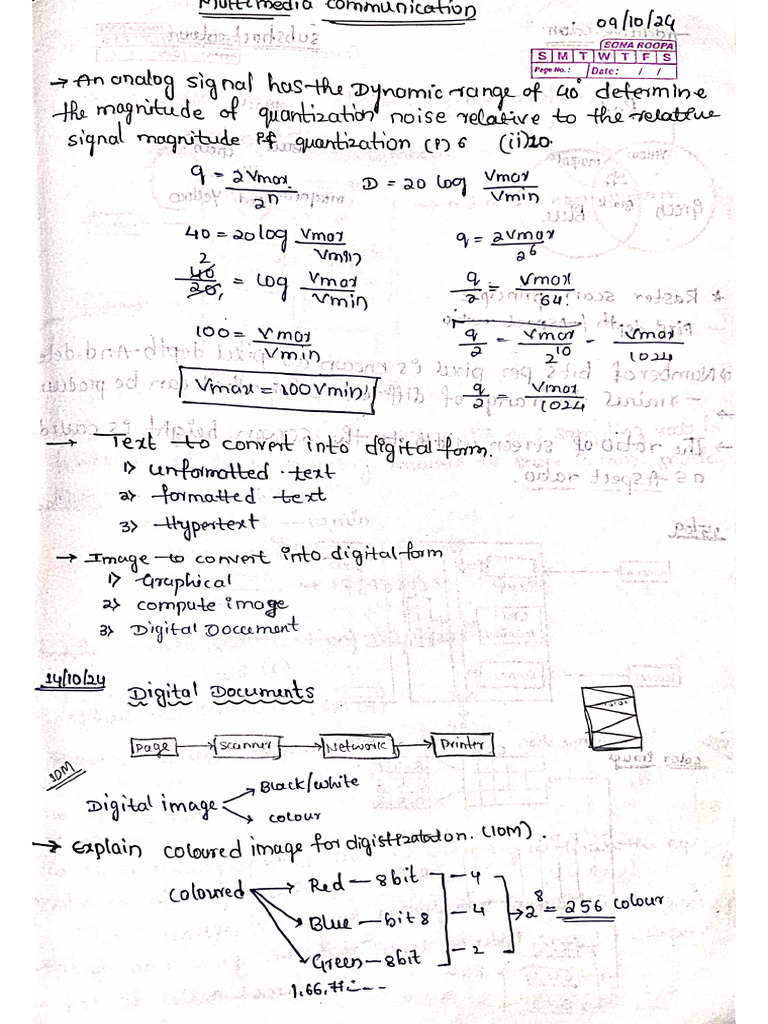 Multimedia communication
09/10/24
SONA ROOPA
S M T W T F S
Page No.: Date: / /
→ An analog signal has the Dynamic range of 40° determine
the magnitude of quantization noise relative to the relative
signal magnitude If quantization (i) 6 (ii) 10.
q = 2Vmax / 2^n D = 20 log Vmax / Vmin
40 = 20 log Vmax / Vmin q = 2Vmax / 2^6
2
40 / 20 = log Vmax / Vmin q / 2 = Vmax / 64
100 = Vmax / Vmin q / 2 = Vmax / 2^10 - Vmax / 1024
Vmax = 100 Vmin q / 2 = Vmax / 1024
→ Text to convert into digital form.
1) unformatted text
2) formatted text
3) Hypertext
→ Image to convert into digital form
1) Graphical
2) compute image
3) Digital Document
14/10/24
Digital Documents
Page → Scanner → Network → Printer
10M
Digital image
Black/white
colour
→ Explain coloured image for (10M).
coloured
Red - 8bit - 4
Blue - bit 8 - 4 → 2^8 = 256 colour
Green - 8bit - 2